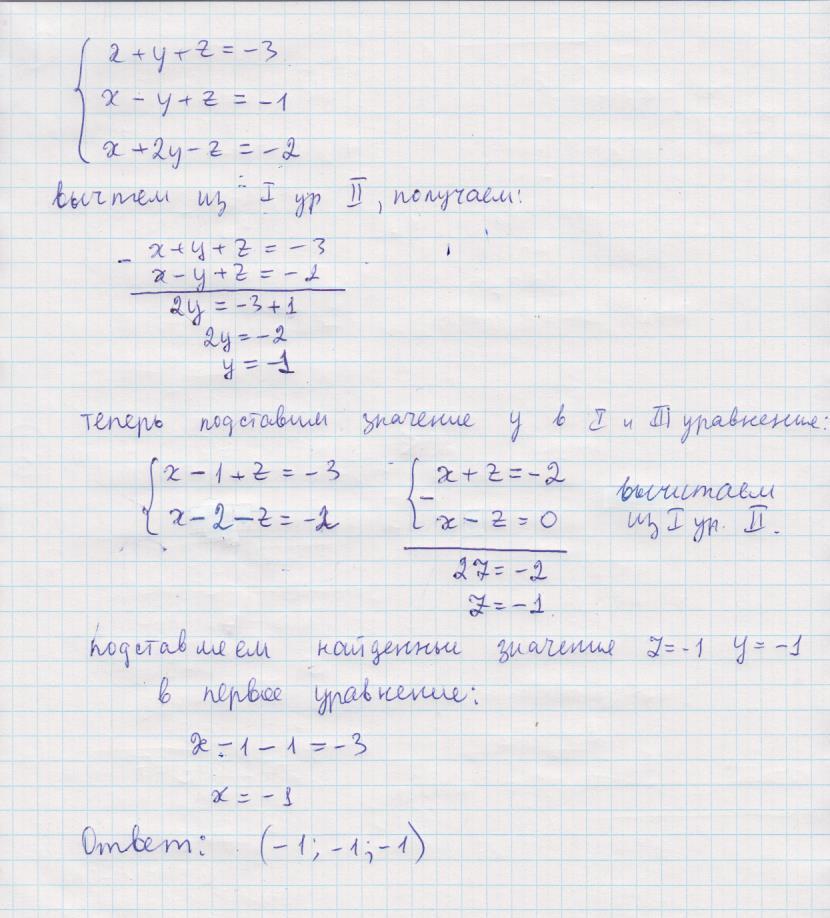 x + y + z = -3
x - y + z = -1
x + 2y - z = -2
вычтем из I ур II, получаем:
- x + y + z = -3
x - y + z = -1
2y = -3 + 1
2y = -2
y = -1
теперь подставим значение y в I и III уравнение:
x - 1 + z = -3
x - 2 - z = -2
- x + z = -2
x - z = 0
вычитаем
из I ур. II.
2z = -2
z = -1
подставляем найденные значения z = -1 y = -1
в первое уравнение:
x - 1 - 1 = -3
x = -1
Ответ: (-1; -1; -1)